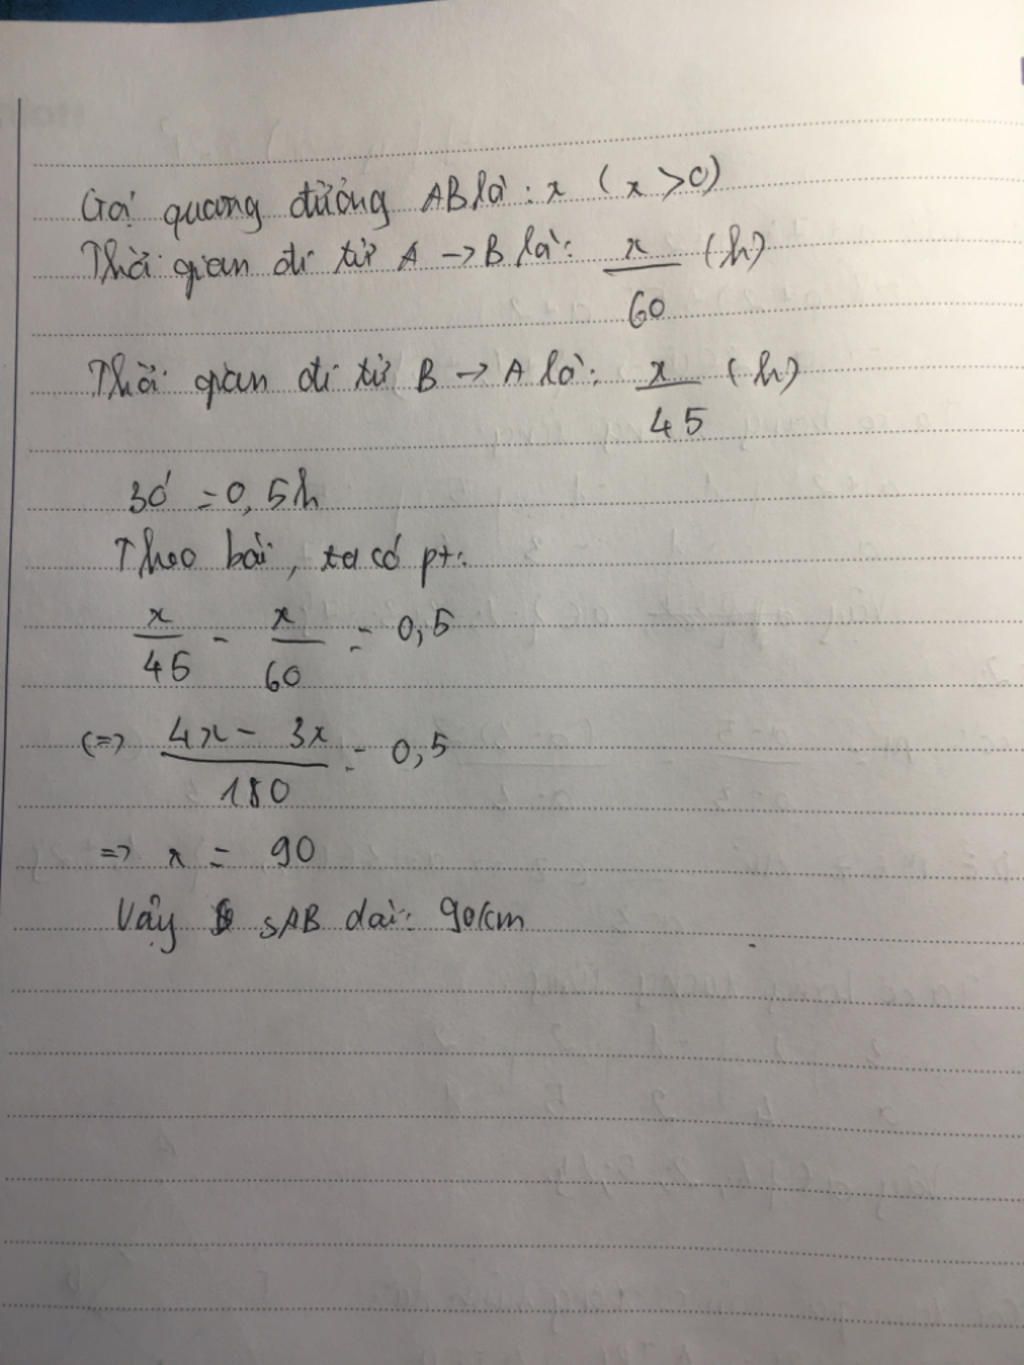 Gọi quãng đường AB là: x (x>0)
Thời gian đi từ A → B là: x/60 (h)
Thời gian đi từ B → A là: x/45 (h)
30' = 0,5h
Theo bài, ta có pt:
x/45 - x/60 = 0,5
(=> (4x - 3x)/180 = 0,5
=> x = 90
Vậy sAB dài: 90km